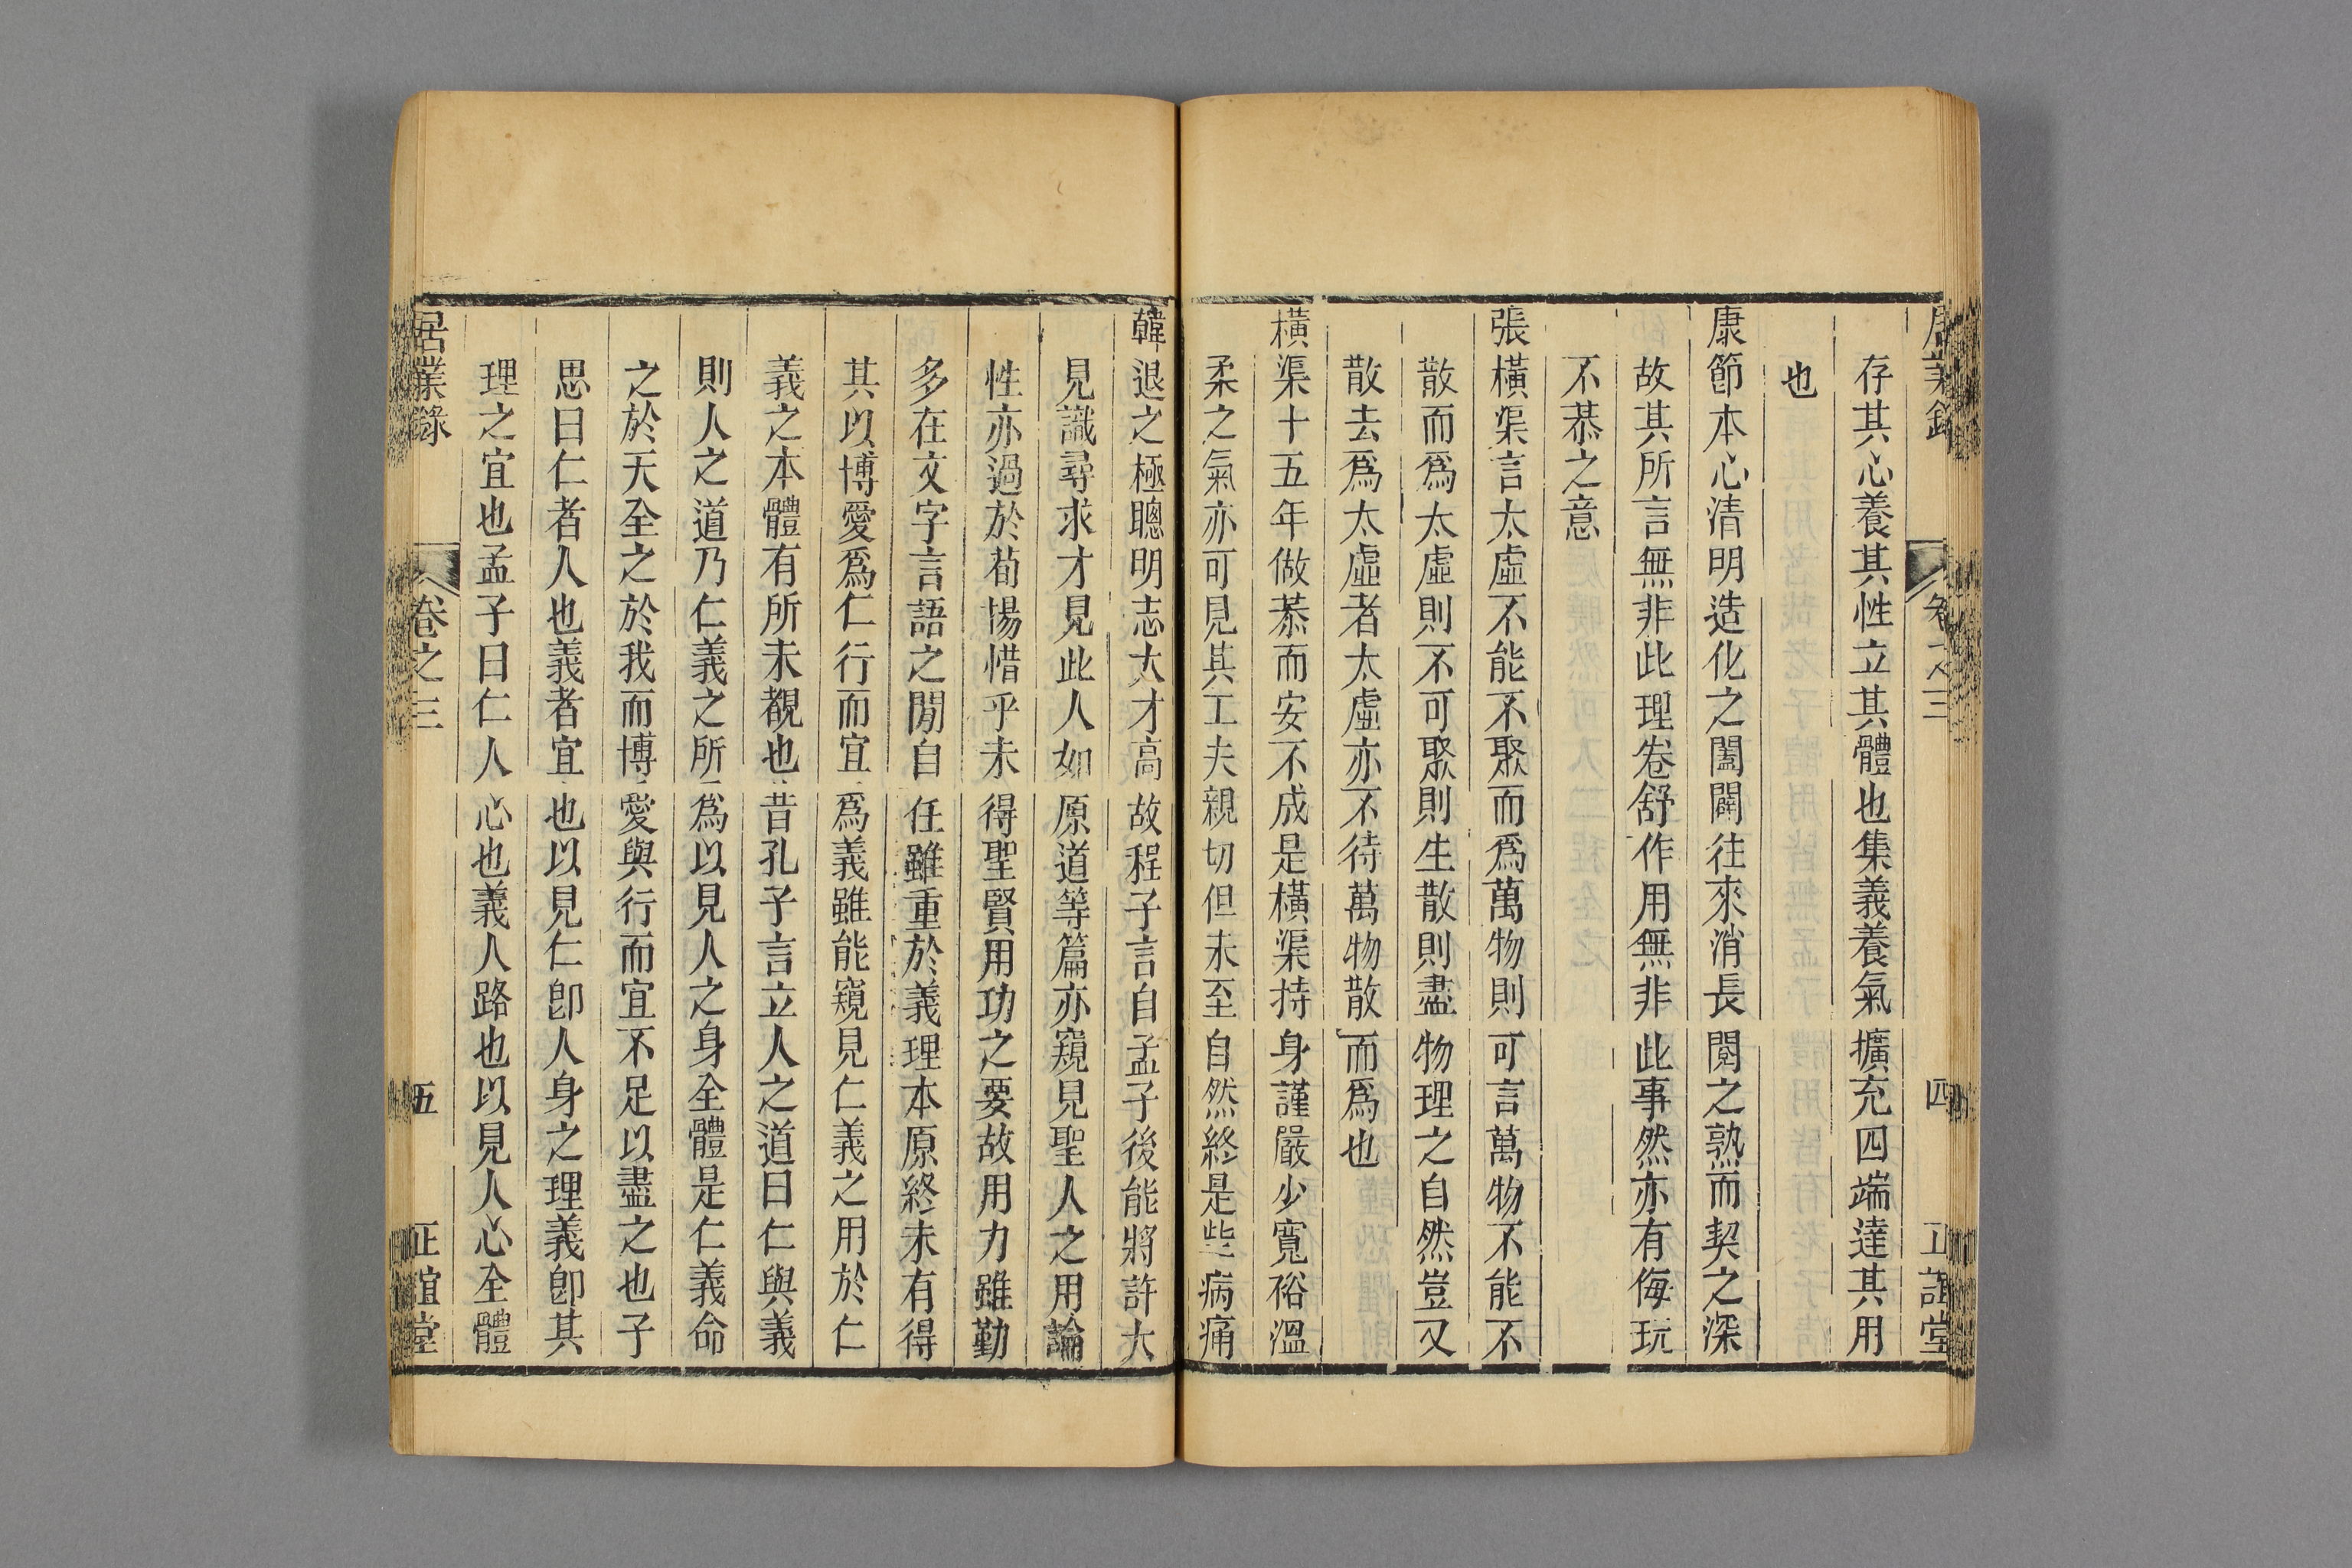 居業錄 卷之三 四 正誼堂
存其心養其性立其體也集義養氣擴充四端達其用
也
康節本心清明造化之闔闢往來消長閱之熟而契之深
故其所言無非此理卷舒作用無非此事然亦有侮玩
不恭之意
張橫渠言太虛不能不聚而爲萬物則可言萬物不能不
散而爲太虛則不可聚則生散則盡物理之自然豈又
散去爲太虛者太虛亦不待萬物散而爲也
橫渠十五年做恭而安不成是橫渠持身謹嚴少寬裕溫
柔之氣亦可見其工夫親切但未至自然終是些病痛
韓退之極聰明志大才高故程子言自孟子後能將許大
見識尋求才見此人如原道等篇亦窺見聖人之用論
性亦過於荀揚惜乎未得聖賢用功之要故用力雖勤
多在文字言語之閒自任雖重於義理本原終未有得
其以博愛爲仁行而宜爲義雖能窺見仁義之用於仁
義之本體有所未覩也昔孔子言立人之道曰仁與義
則人之道乃仁義之所爲以見人之身全體是仁義命
之於天全之於我而博愛與行而宜不足以盡之也子
思曰仁者人也義者宜也以見仁卽人身之理義卽其
理之宜也孟子曰仁人心也義人路也以見人心全體
居業錄 卷之三 五 正誼堂